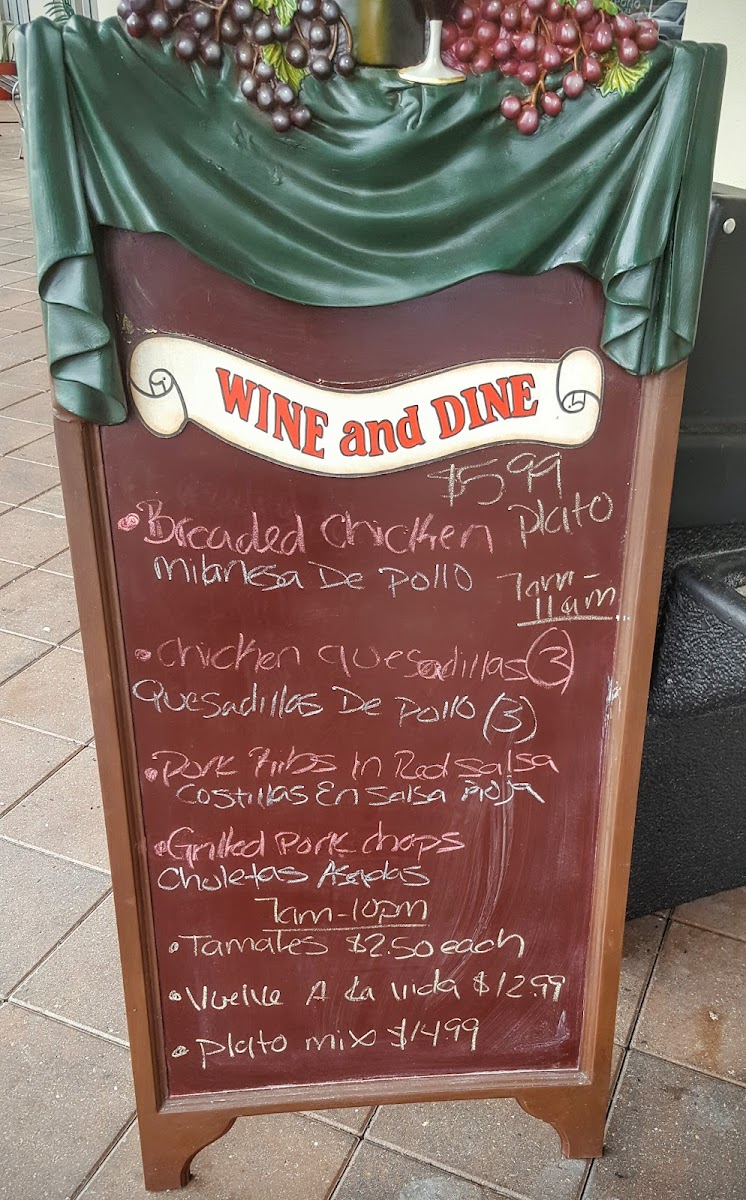 WINE and DINE
$5.99
Breaded Chicken Plato
milanesa De pollo 7am-
11am
chicken quesadillas (3)
Quesadillas De pollo (3)
Pork Ribs In Red salsa
Costillas En salsa Roja
Grilled Pork chops
Chuletas Asadas
7am-10pm
Tamales $2.50 each
Vuelve A La vida $12.99
plato mix $14.99